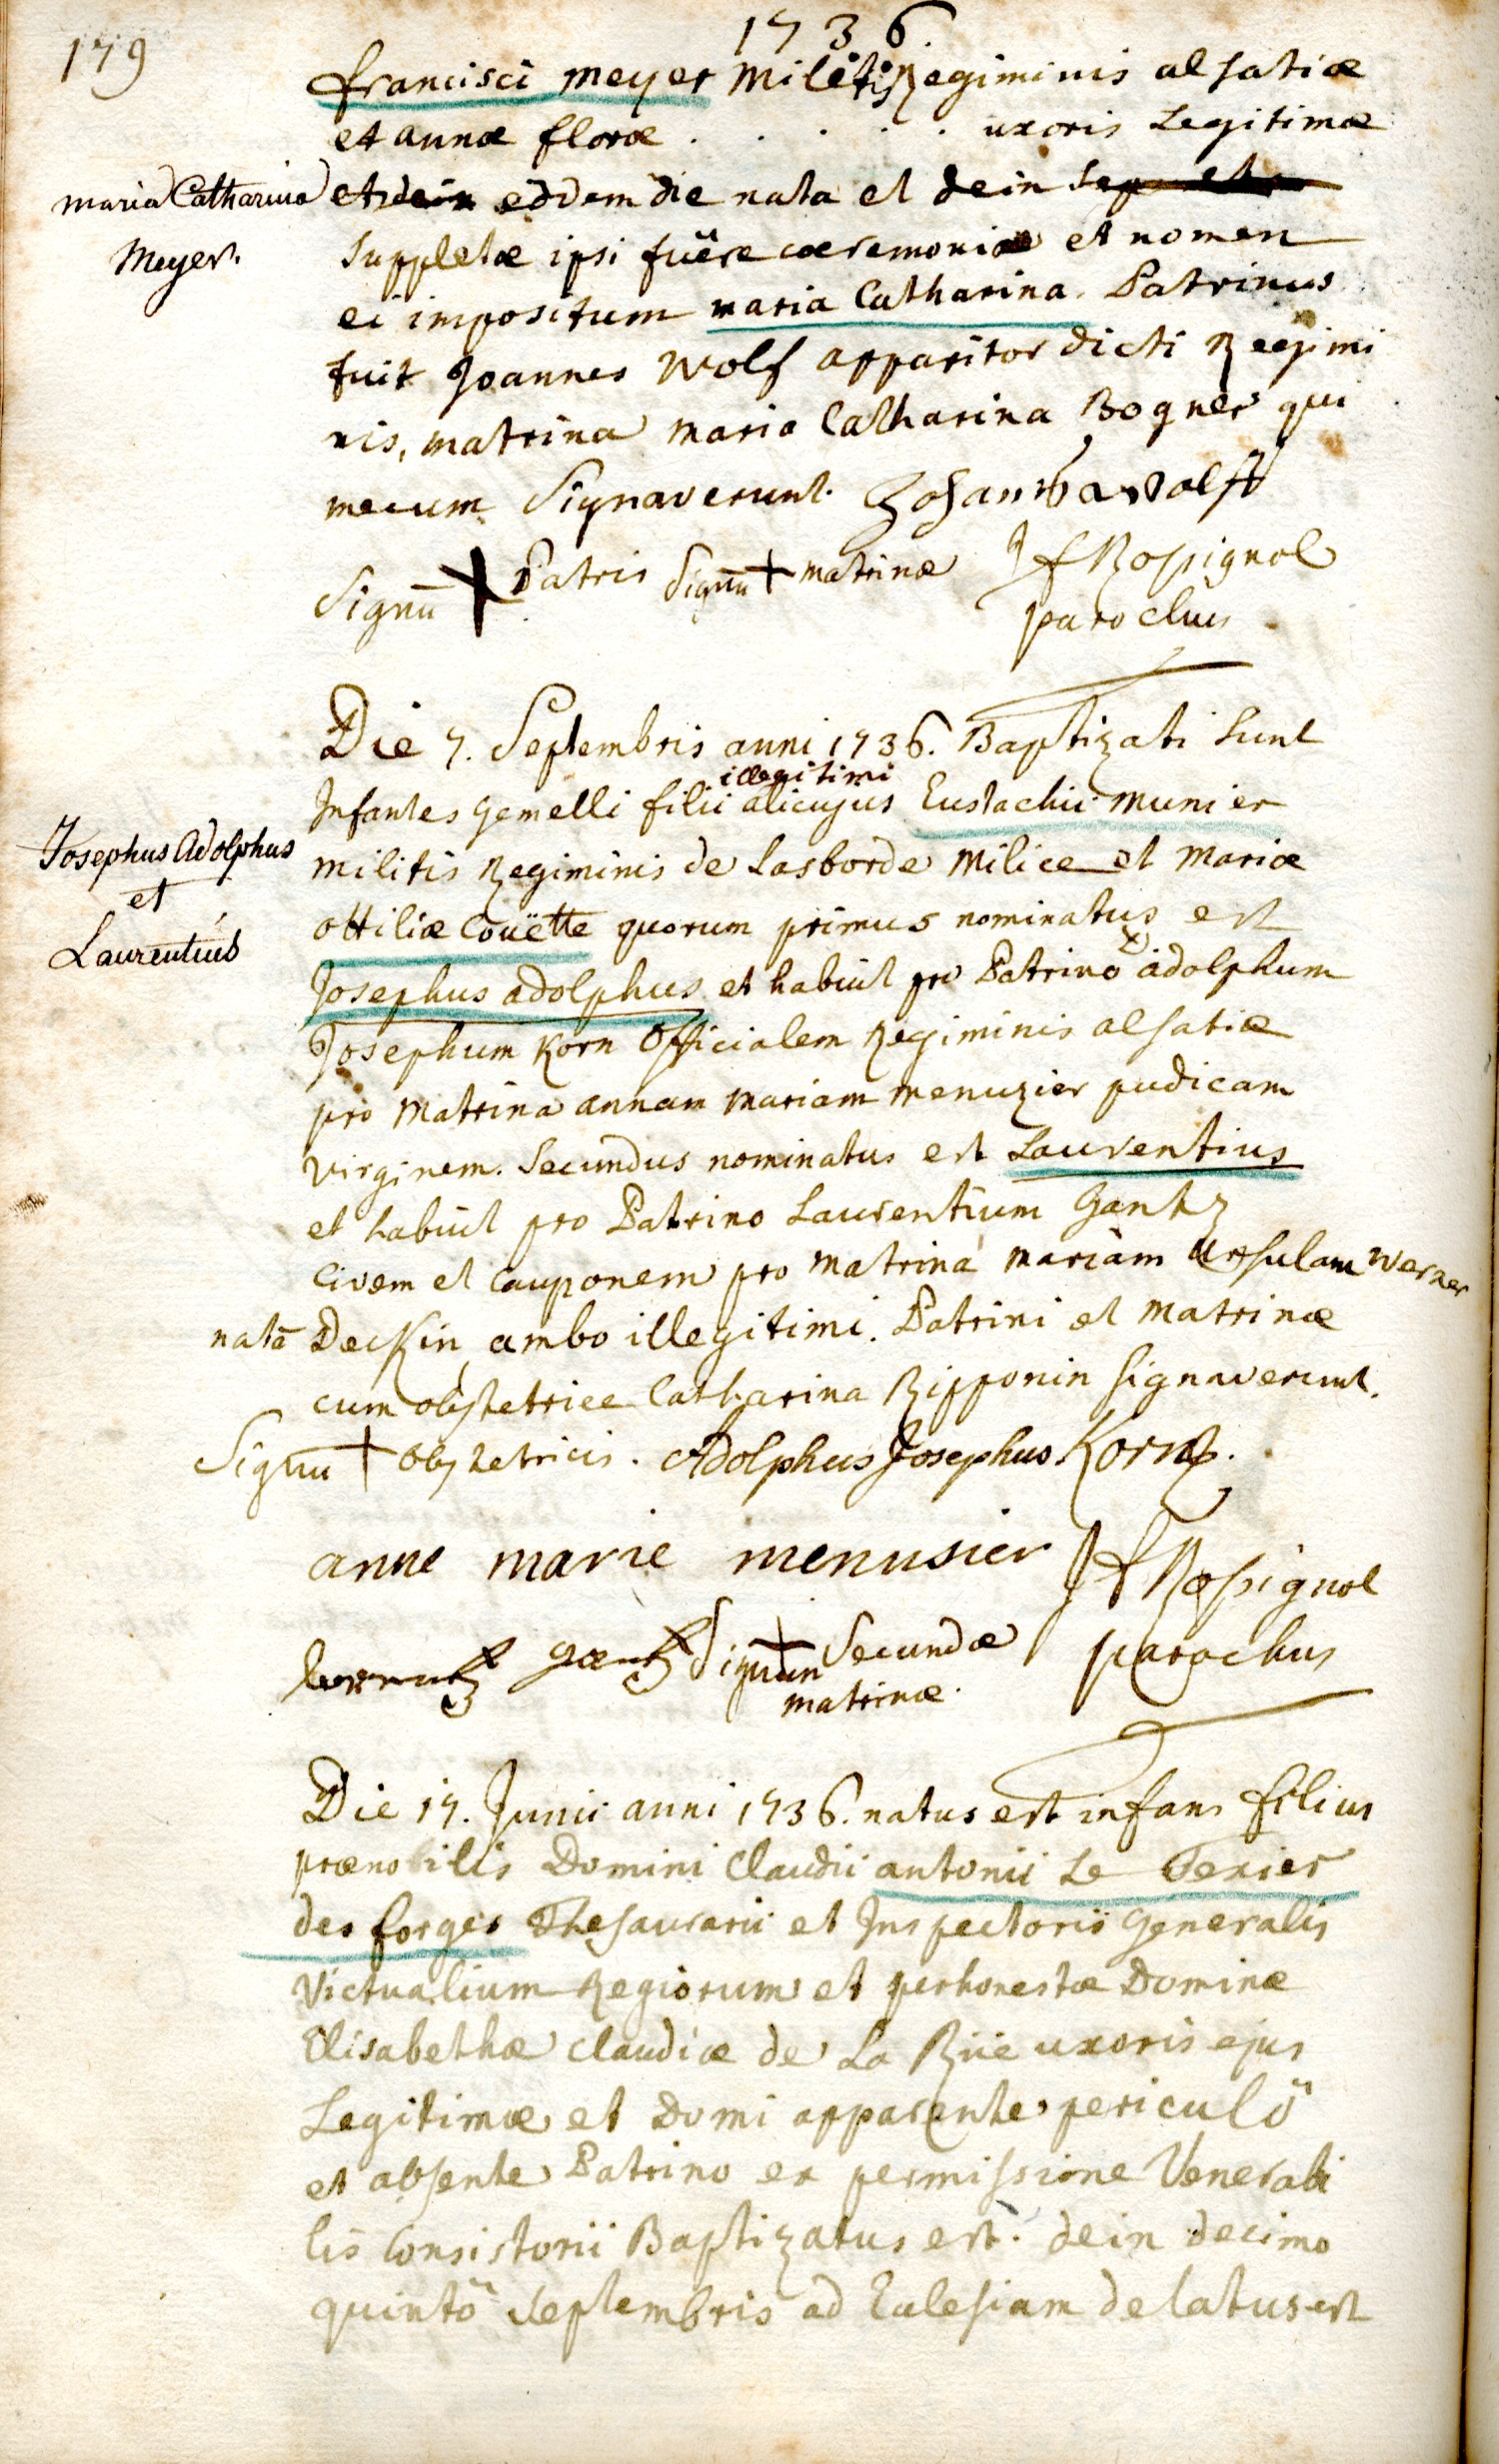 179
1736
francisci meyer militis Regiminis alsatiæ
et annæ floræ . . . . . uxoris Legitimæ
maria Catharina
Meyer.
eâdem die nata et dein
suppletæ ipsi fuêre cæremoniæ et nomen
ei impositum maria Catharina. Patrinus
fuit Joannes Wolf apparitor dicti Regimi
nis, matrina maria Catharina Bogner qui
mecum Signaverunt.
Signū + Patris Signū + matrinæ
JfRossignol
parochus
Die 7. Septembris anni 1736. Baptizati sunt
illegitimi
Infantes gemelli filii alicujus Eustachii munier
Josephus Adolphus
et
Laurentius
militis Regiminis de Lasborde milice et Mariæ
ottiliæ Couëtte quorum primus nominatus est
Josephus adolphus et habuit pro Patrino adolphum
Josephum Korn Officialem Regiminis alsatiæ
pro Matrina annam mariam menuzier pudicam
virginem. Secundus nominatus est Laurentius
et habuit pro Patrino Laurentium Gantz
Civem et Cauponem pro matrina mariam Ursulam Werner
natā Deckin ambo illegitimi. Patrini et matrinæ
cum obstetrice Catharina Ripponin signaverunt.
Signū + obstetricis. Adolphus Josephus Korn
anne marie menusier
JfRossignol
parochus
Signum + Secundæ
matrinæ.
Die 17. Junii anni 1736. natus est infans filius
prænobilis Domini Claudii antonii Le Texier
des forges Thesaurarii et Inspectoris Generalis
Victualium Regiorum et perhonestæ Dominæ
Elisabethæ Claudiæ de La Rüe uxoris ejus
Legitimæ et Domi apparente periculô
et absente Patrino ex permissione Venerabi
lis Consistorii Baptizatus est. dein decimo
quintô Septembris ad Ecclesiam delatus est